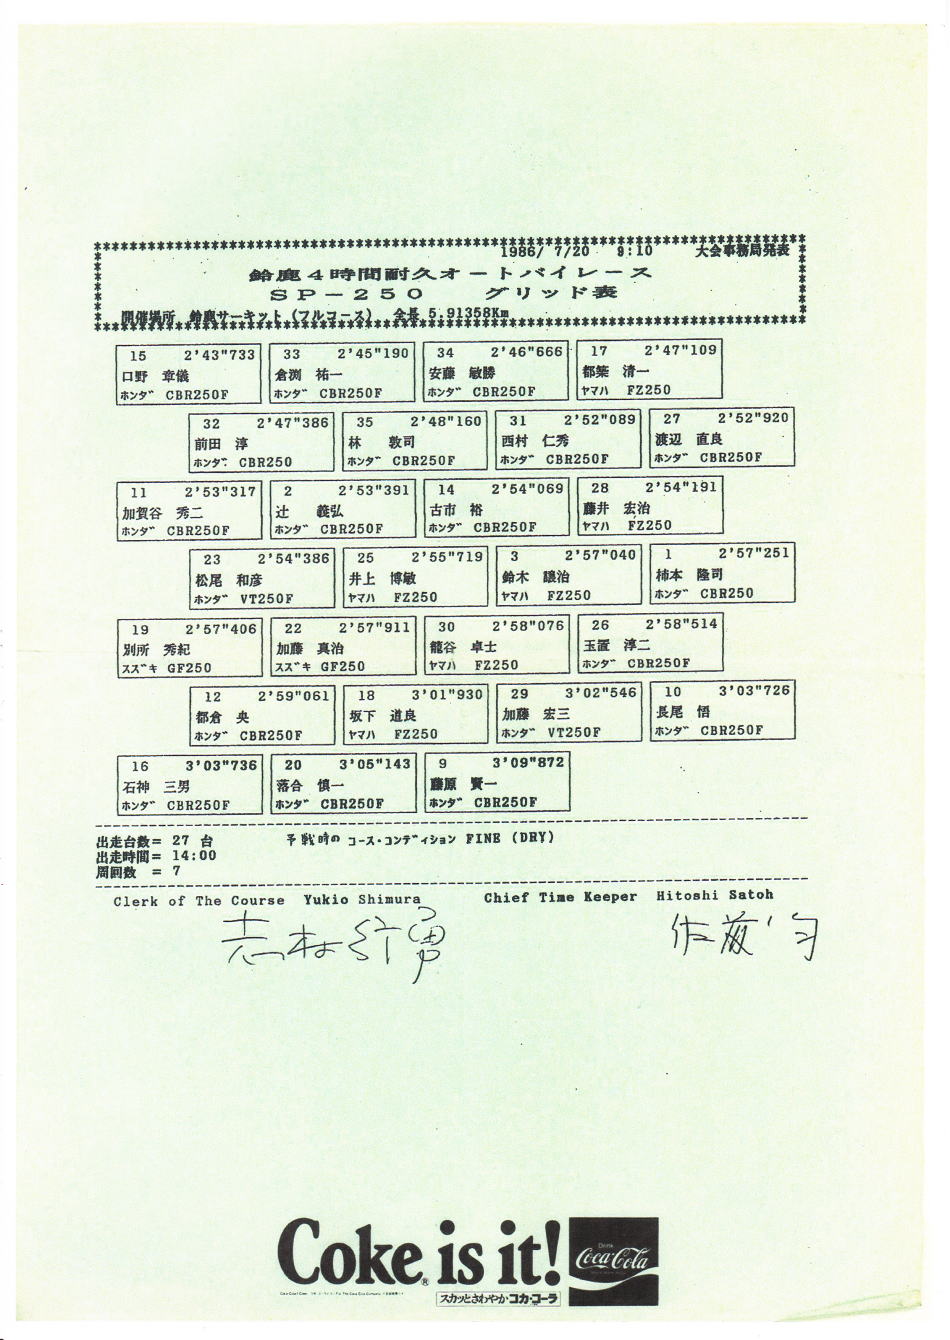 1986/ 7/20 9:10 大会事務局発表
鈴鹿4時間耐久オートバイレース
SP-250 グリッド表
開催場所 鈴鹿サーキット(フルコース) 全長 5.91358Km
15 2'43"733 33 2'45"190 34 2'46"666 17 2'47"109
口野 章儀 倉渕 祐一 安藤 敏勝 都築 清一
ホンダ CBR250F ホンダ CBR250F ホンダ CBR250F ヤマハ FZ250
32 2'47"386 35 2'48"160 31 2'52"089 27 2'52"920
前田 淳 林 敦司 西村 仁秀 渡辺 直良
ホンダ CBR250 ホンダ CBR250F ホンダ CBR250F ホンダ CBR250F
11 2'53"317 2 2'53"391 14 2'54"069 28 2'54"191
加賀谷 秀二 辻 義弘 古市 裕 藤井 宏治
ホンダ CBR250F ホンダ CBR250F ホンダ CBR250F ヤマハ FZ250
23 2'54"386 25 2'55"719 3 2'57"040 1 2'57"251
松尾 和彦 井上 博敏 鈴木 譲治 柿本 隆司
ホンダ VT250F ヤマハ FZ250 ヤマハ FZ250 ホンダ CBR250
19 2'57"406 22 2'57"911 30 2'58"076 26 2'58"514
別所 秀紀 加藤 真治 籠谷 卓士 玉置 淳二
スズキ GF250 スズキ GF250 ヤマハ FZ250 ホンダ CBR250F
12 2'59"061 18 3'01"930 29 3'02"546 10 3'03"726
都倉 央 坂下 道良 加藤 宏三 長尾 悟
ホンダ CBR250F ヤマハ FZ250 ホンダ VT250F ホンダ CBR250F
16 3'03"736 20 3'05"143 9 3'09"872
石神 三男 落合 慎一 藤原 賢一
ホンダ CBR250F ホンダ CBR250F ホンダ CBR250F
出走台数= 27 台 予戦時の コース・コンディション FINE (DRY)
出走時間= 14:00
周回数 = 7
Clerk of The Course Yukio Shimura Chief Time Keeper Hitoshi Satoh
Coke is it!
Drink
Coca-Cola
スカッとさわやかコカ・コーラ